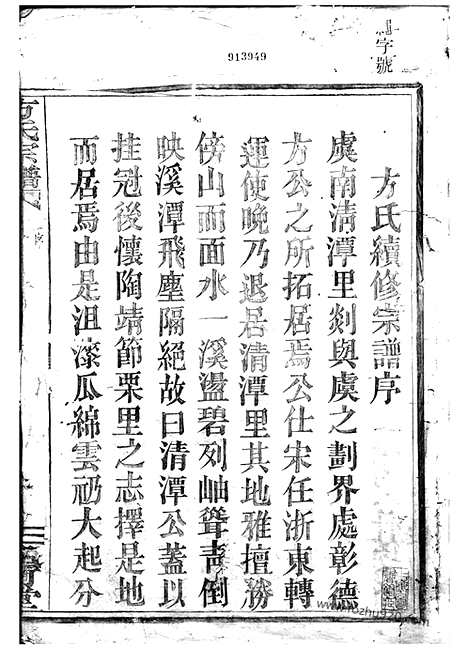 字號
913949
方氏續修宗譜序
虞南清潭里剡與虞之劃界處彰德
方公之所拓居焉公仕宋任浙東轉
運使晚乃退居清潭里其地雅擅勝
傍山而面水一溪盪碧列岫聳靑倒
映溪潭飛塵隔絕故曰清潭公蓋以
挂冠後懷陶靖節栗里之志擇是地
而居焉由是沮漆瓜綿雲礽大起分
方氏宗譜
堂